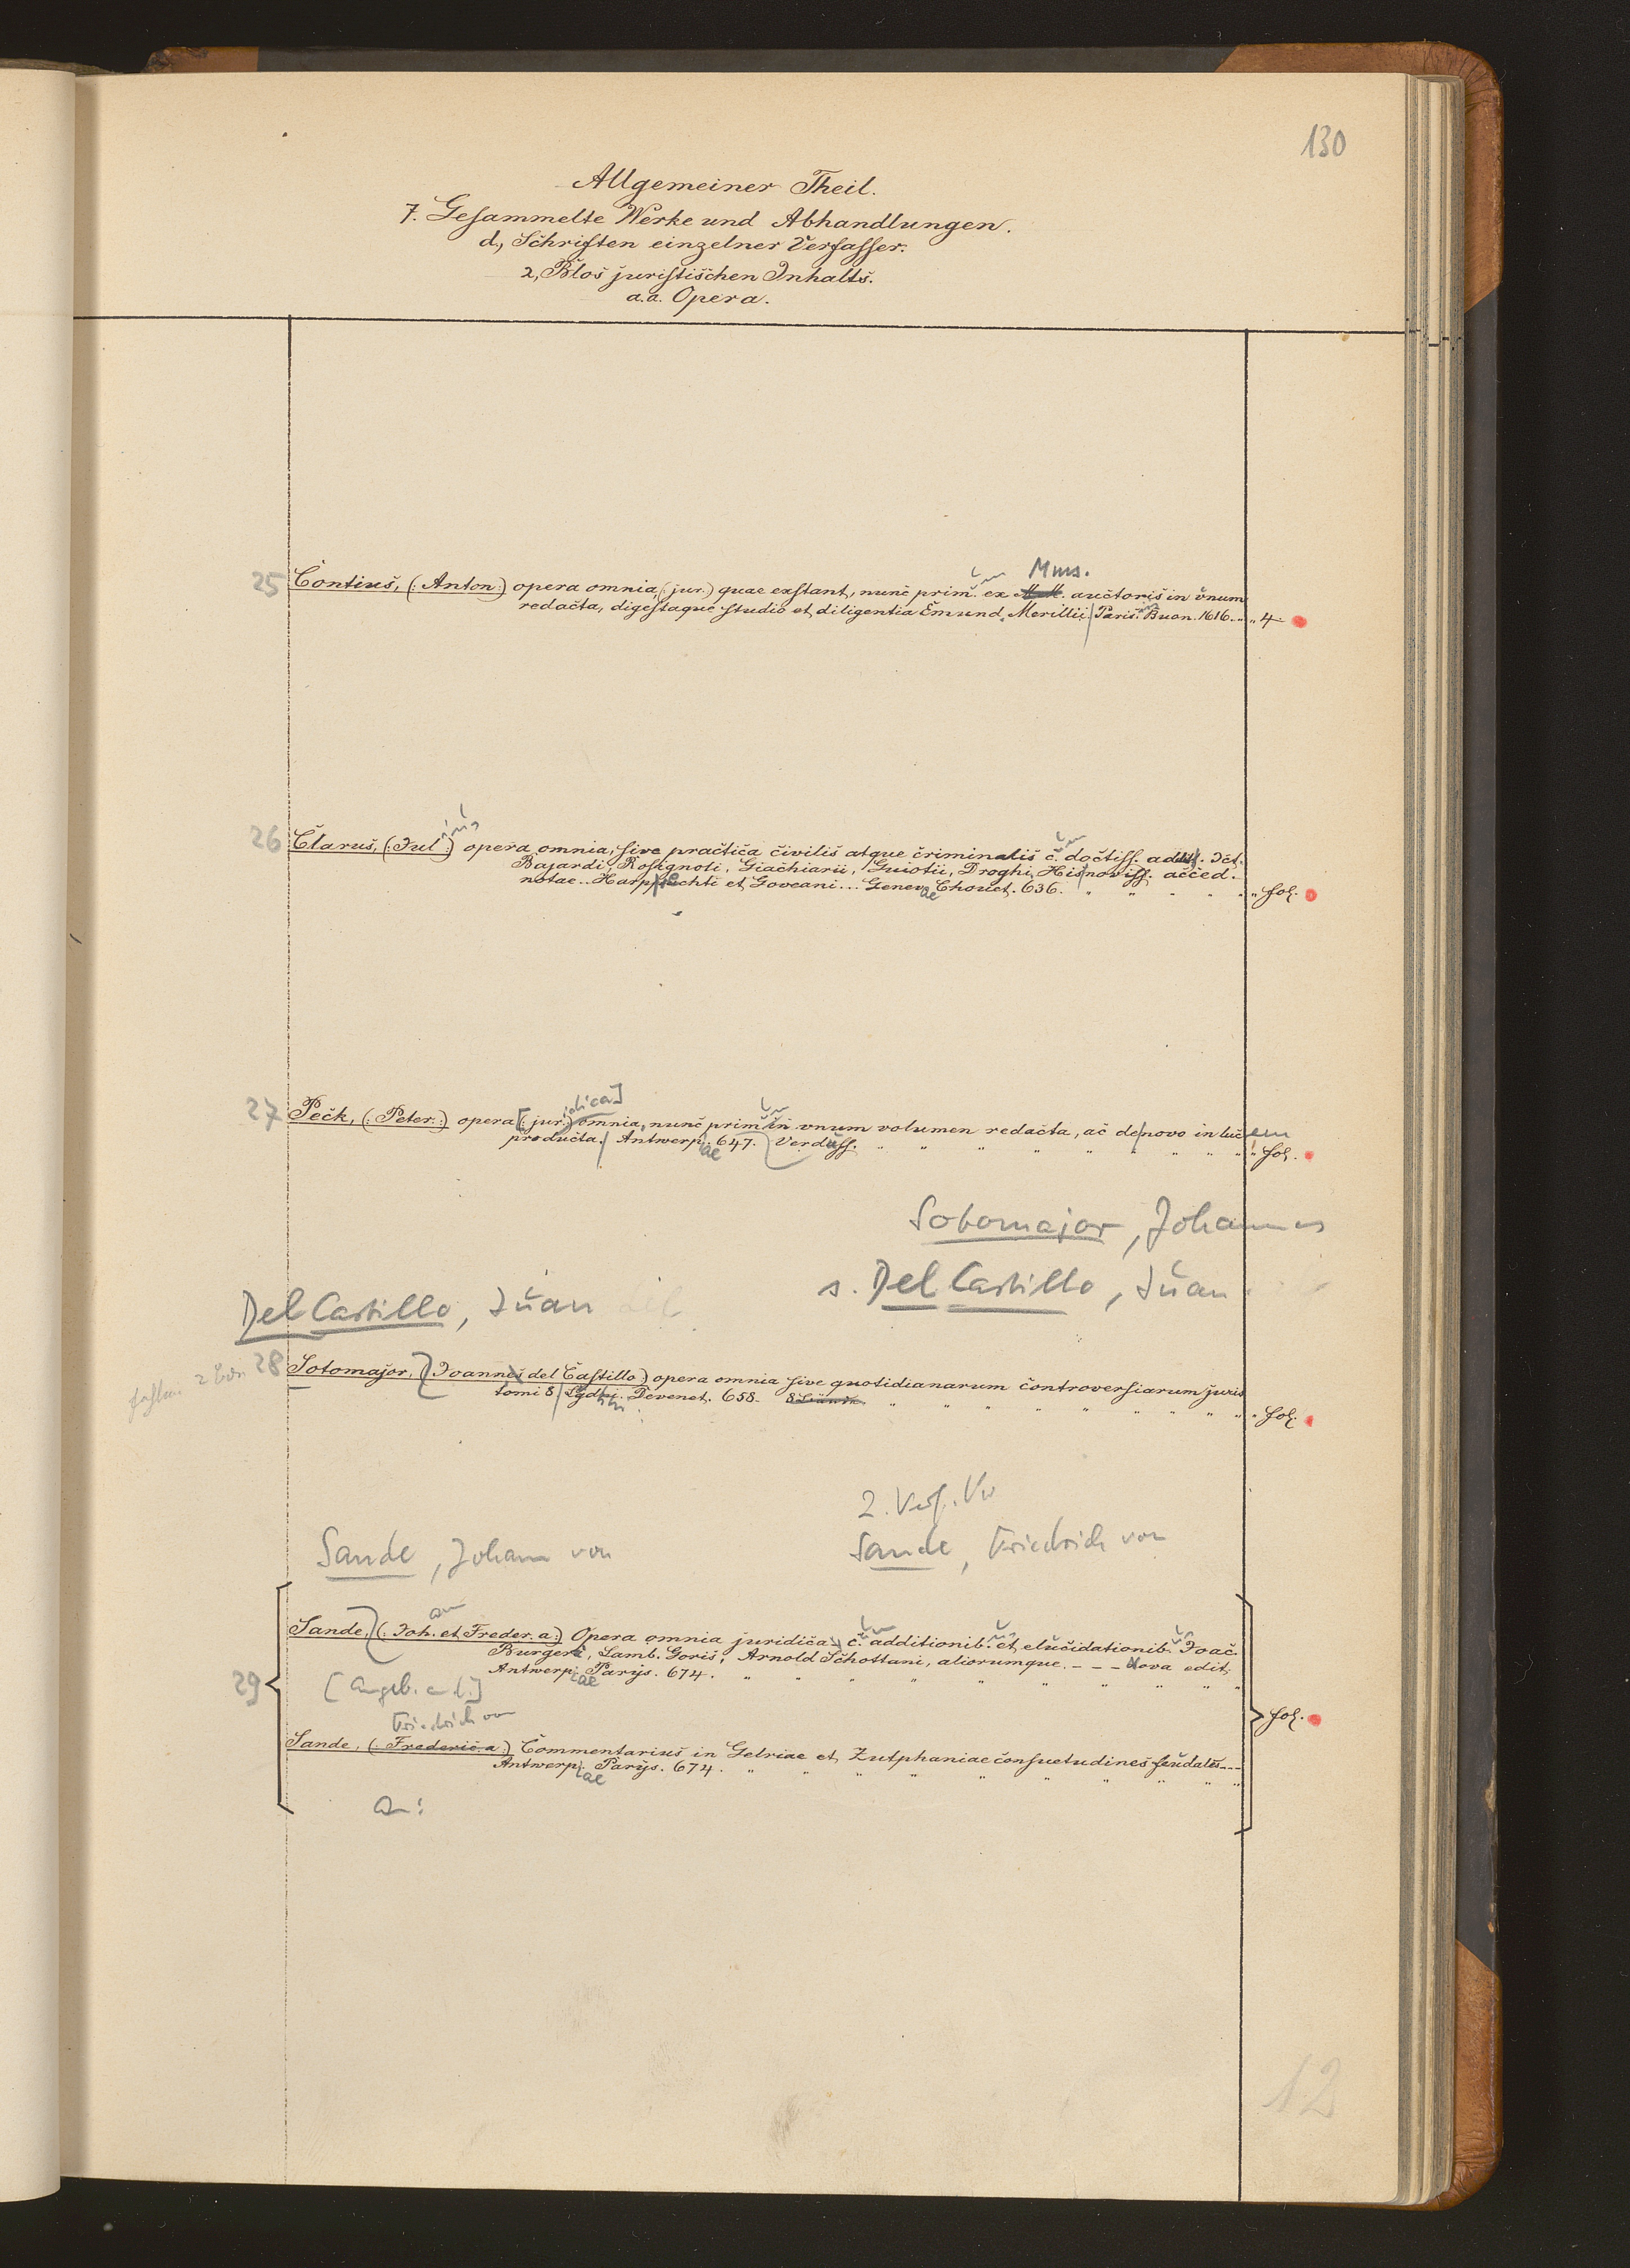 130
Allgemeiner Theil.
7. Gesammelte Werke und Abhandlungen.
d., Schriften einzelner Verfasser.
2, Blos juristischen Inhalts.
a.a. Opera.
Mms.
25 Contius, (: Anton :) opera omnia, (: jur.) quae exstant, nunc prim. ex auctoris in unum
redacta, digestaque studio et diligentia Emund. Merillii. Paris. Buon. 1616. „ „ 4
ius
26 Clarus, (: Jul :) opera omnia, sive practica civilis atque criminalis c. doctiss. addit. Ict.
Bajardi, Rosignoli, Giachiarii, Guiotii, Droghi, His noviss. acced.
notae.. Harpprechti et Goveani... Genevae Chouet. 636. „ „ „ „ „ „ fol.
idica]
27 Peck, (: Peter :) opera [(: jur.) omnia, nunc prim in unum volumen redacta, ac de novo in lucem
producta. Antwerpiae 647. Verduss. „ „ „ „ „ „ „ „ „ fol.
Sotomajor, Johannes
s. Del Castillo, Juan
Del Castillo, Juan
fehlen 2 Bde. 28 Sotomajor, (Joannes del Castillo) opera omnia sive quotidianarum controversiarum juris
tomi 8 Lgdni. Devenet. 658. 8 Bände „ „ „ „ „ „ „ „ „ fol.
2. Verf. Vw
Sande, Johann von
Sande, Friedrich von
an
Sande, (: Joh. et Freder. a :) Opera omnia juridica c. additionib. et elucidationib. Joac.
Burgeri, Lamb. Goris, Arnold Schottani, aliorumque. - - - nova edit.
Antwerpiae Parijs. 674. „ „ „ „ „ „ „ „ „
29 [angeb. a. d.]
fol.
Friedrich von
Sande, (: Frederic. a :) Commentarius in Gelriae et Zutphaniae consuetudines feudales - - -
Antwerpiae Parijs. 674. „ „ „ „ „ „ „ „ „
an:
12